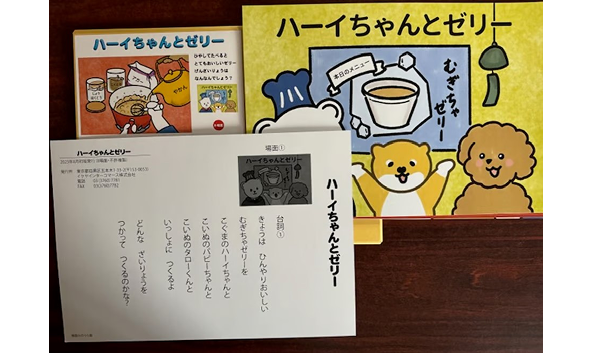 ハーイちゃんとゼリー
ひやしてたべると
とてもおいしいゼリー
げんざいりょうは
なんなんでしょう?
ハーイちゃんとゼリー
本日のメニュー
むぎちゃ
ゼリー
ハーイちゃんとゼリー
場面①
ハーイちゃんとゼリー
台詞①
きょうは ひんやりおいしい
むぎちゃゼリーを
こぐまのハーイちゃんと
こいぬのパピーちゃんと
こいぬのタローくんと
いっしょに つくるよ
どんな ざいりょうを
つかって つくるのかな?